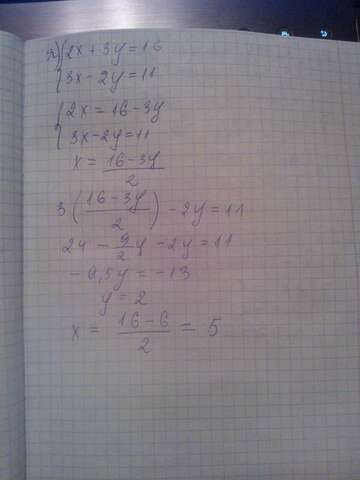 2) { 2x + 3y = 16
3x - 2y = 11
{ 2x = 16 - 3y
3x - 2y = 11
x = \frac{16 - 3y}{2}
3 ( \frac{16 - 3y}{2} ) - 2y = 11
24 - \frac{9}{2} y - 2y = 11
- 6,5y = - 13
y = 2
x = \frac{16 - 6}{2} = 5